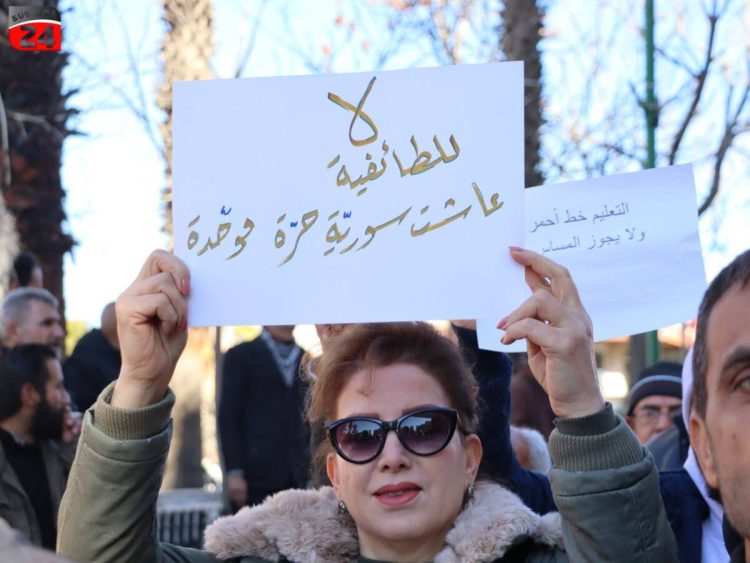 لا
للطائفية
عاشت سوريّة حرّة موحّدة
التعليم خط أحمر
ولا يجوز المساس
24